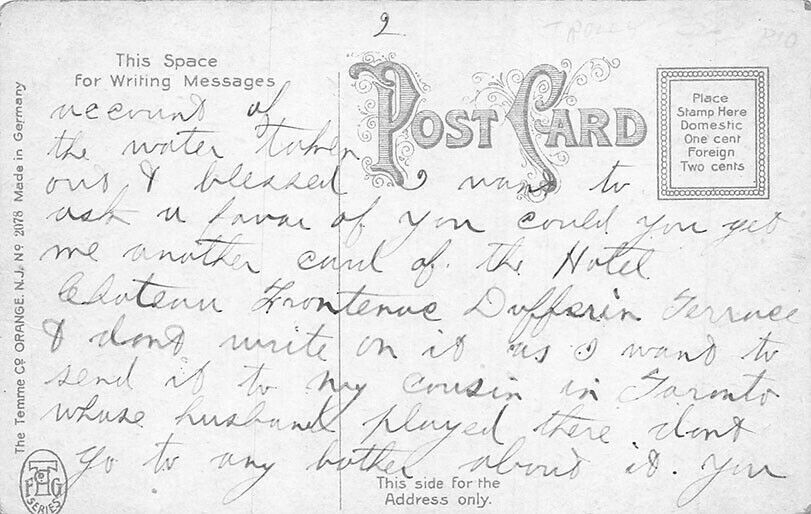 2
This Space
For Writing Messages
POST CARD
Place
Stamp Here
Domestic
One cent
Foreign
Two cents
account of
the water taken
out & blessed I want to
ask a favor of you could you get
me another card of the Hotel
Chateau Frontenac Dufferin Terrace
& dont write on it as I want to
send it to my cousin in Toronto
whose husband played there dont
go to any bother about it. you
This side for the
Address only.
The Temme Co. ORANGE. N.J. No 2078 Made in Germany
SERIES